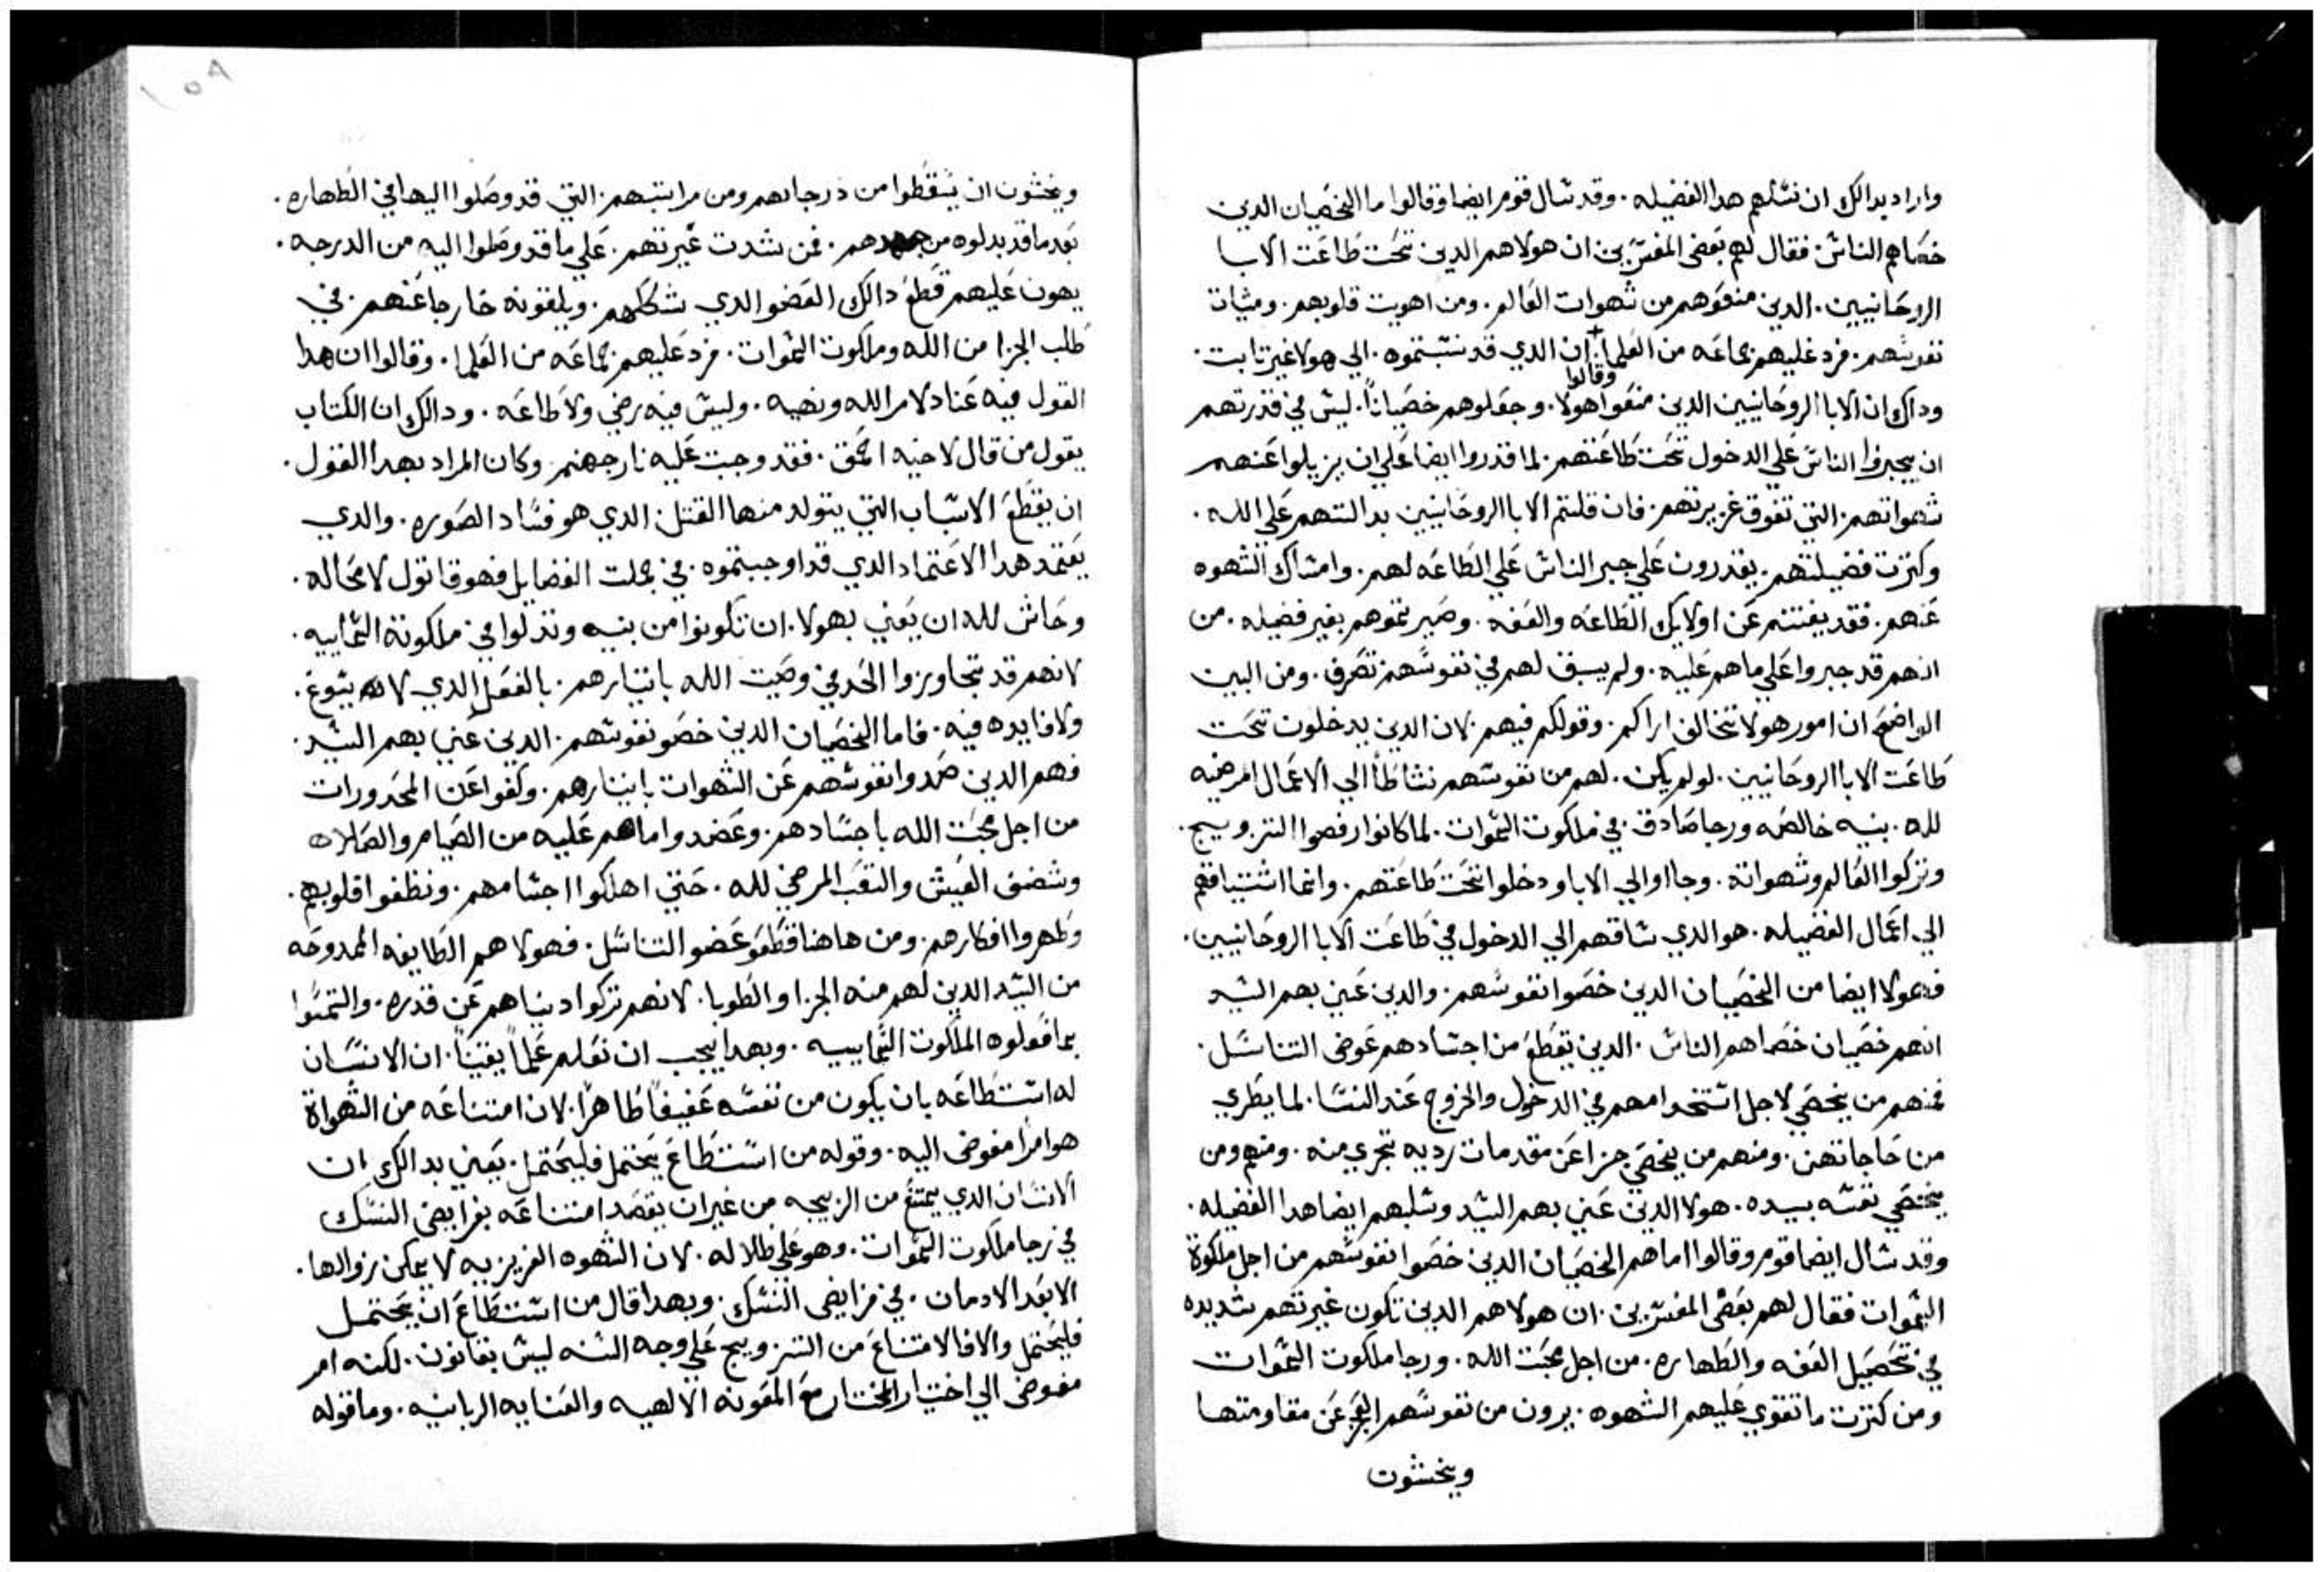 واراد بدالك ان نسلهم هدا الفضيله. وقد سال قوم ايضا وقالوا ما الخصيان الدين
خصاهم الناس فقال لهم بعض المفسرين ان هولا هم الدين تحت طاعت الابا
الروحانيين. الدين منعوهم من شهوات العالم. ومن اهويت قلوبهم. ومشات
نفوسهم. فرد عليهم جماعه من العلما + ان الدي قد نسبتموه. الي هولا غير تابت.
وقالوا
وداك ان الابا الروحانيين الدين منعوا هولا. وجعلوهم خصياناً. ليس في قدرتهم
ان يجبروا الناس علي الدخول تحت طاعتهم. لما قدروا ايضا علي ان يزيلوا عنهم
شهواتهم. التي تفوق غريزتهم. فان قلتم الابا الروحانيين بدالتهم علي الله.
وكترت فضيلتهم. يقدرون علي جبر الناس علي الطاعه لهم. وامساك الشهوه
عنهم. فقد يفتتم عن اولايك الطاعه والعفه. وصيرتموهم بغير فضيله. من
انهم قد جبروا علي ماهم عليه. ولم يسبق لهم في نفوسهم تصرف. ومن البين
الواضح ان امور هولا تخالف اراكم. وقولكم فيهم. لان الدين يدخلون تحت
طاعت الابا الروحانيين. لولم يكن. لهم من نفوسهم نشاطاً الي الاعمال المرضيه
لله. بنيه خالصه ورجا صادق. في ملكوت السموات. لما كانوا رفضوا التزويج.
وتركوا العالم وشهواته. وجااوا الي الابا ودخلوا تحت طاعتهم. وانما اشتياقهم
الي اعمال الفضيله. هو الدي ساقهم الي الدخول في طاعت الابا الروحانيين.
فهولا ايضا من الخصيان الدين خصوا نفوسهم. والدين عني بهم السيد
انهم خصيان خصاهم الناس. الدين يقطع من اجسادهم عوض التناسل.
فمنهم من يخصي لاجل استخدامهم في الدخول والخروج عند النسا. لما يطري
من حاجاتهن. ومنهم من يخصي جزا عن مقدمات رديه تجري منه. ومنهم من
يختصي نفسه بيده. هولا الدين عني بهم السيد وسلبهم ايضا هدا الفضيله.
وقد سال ايضا قوم وقالوا اما هم الخصيان الدين خصوا نفوسهم من اجل ملكوة
السموات فقال لهم بعض المفسرين. ان هولا هم الدين تكون غيرتهم شديده
في تحصيل العفه والطهاره. من اجل محبت الله. ورجا ملكوت السموات
ومن كترت ما تقوي عليهم الشهوه. يرون من نفوسهم العجز عن مقاومتها
ويخشون
ويخشون ان يسقطوا من درجاتهم ومن مراتبهم. التي قد وصلوا اليها في الطهاره.
بعد ما قد بدلوه من جهدهم. فمن شدت غيرتهم. علي ما قد وصلوا اليه من الدرجه.
يهون عليهم قطع دالك العضو الدي شككهم. ويلقونه خارجا عنهم. في
طلب الجزا من الله وملكوت السموات. فرد عليهم جماعه من العلما. وقالوا ان هدا
القول فيه عناد لامر الله ونهيه. وليس فيه رضي ولا طاعه. ودالك ان الكتاب
يقول من قال لاخيه احمق. فقد وجبت عليه نار جهنم. وكان المراد بهدا القول.
ان يقطع الاسباب التي يتولد منها القتل. الدي هو فساد الصوره. والدي
يعتمد هدا الاعتماد الدي قد اوجبتموه. في جملت الفضايل فهو قاتول لا محاله.
وحاش لله ان يعني بهولا. ان تكونوا من بنيه وتدلوا في ملكوته السماييه.
لانهم قد تجاوزوا الحد في وصيت الله باتيارهم. بالفعل الدي لا يسوغ.
ولا فايده فيه. فاما الخصيان الدين خصو نفوسهم. الدين عني بهم السيد.
فهم الدين صمدوا نفوسهم عن الشهوات باتيارهم. وكفوا عن المحدورات
من اجل محبت الله باجسادهم. وعضدوا ماهم عليه من الصيام والصلاه
وشضف العيش والتعب المرضي لله. حتي اهلكوا اجسامهم. ونظفوا قلوبهم.
وطهروا افكارهم. ومن هاهنا قطعو عضو التناسل. فهولا هم الطايفه الممدوحه
من السيد الدين لهم منه الجزا والطوبا. لانهم تركوا دنياهم عن قدره. والتمسوا
بما فعلوه الملكوت السماييه. وبهدا يجب ان نعلم علماً يقيناً. ان الانسان
له استطاعه بان يكون من نفسه عفيفاً طاهراً. لان امتناعه من الشهواة
هو امراً مفوض اليه. وقوله من استطاع يحتمل فليحتمل. يعني بدالك ان
الانسان الدي يمتنع من الزيجه من غير ان يقصد امتناعه بفرايض النسك
في رجا ملكوت السموات. وهو علي ظلاله. لان الشهوه الغريزيه لا يمكن زوالها.
الا بعد الادمان. في فرايض النسك. وبهدا قال من استطاع ان يحتمل
فليحتمل والا فالامتناع من التزويج علي وجه السنه ليس بقانون. لكنه امر
مفوض الي اختيار المختار مع المعونه الالهيه والعنايه الربانيه. وما قوله